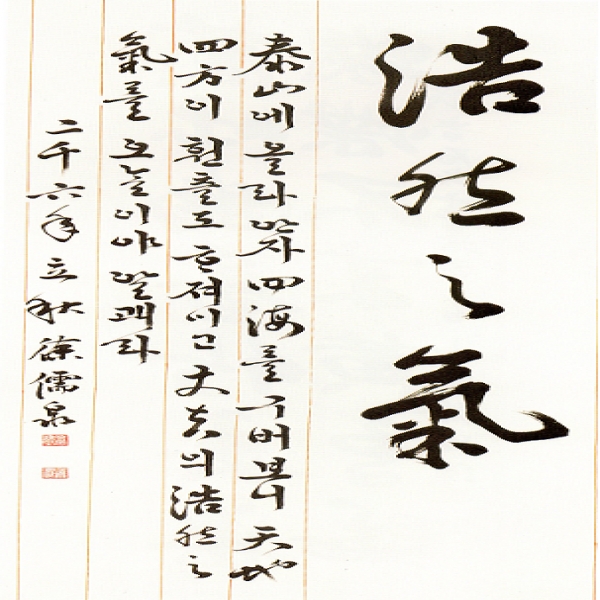 浩然之氣
泰山에 올라 안자 四海를 구버보니 天地
四方이 훤츨도 흔져이고 丈夫의 浩然之
氣를 오늘이야 알괘라
二千六年 立秋 徐儒泉